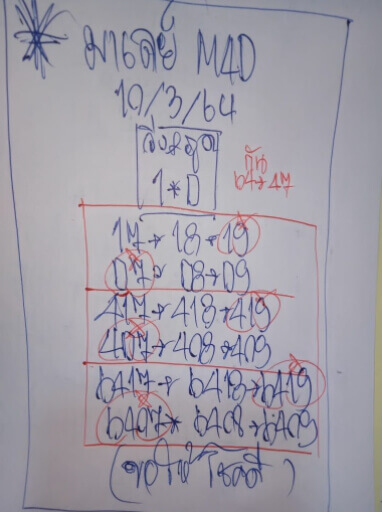 มาเลย์ M4D
10/3/64
วิ่ง+รูด
1*0
กัน
64+47
17+18+19
07+08+09
417+418+419
407+408+409
6417+6418+6419
6407+6408+6409
(ขอให้โชคดี)